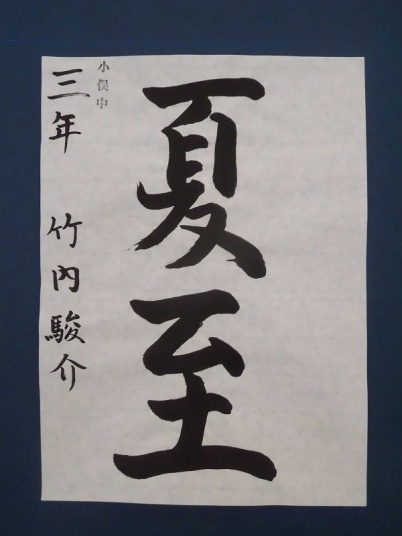 夏至
小俣中
三年 竹内駿介